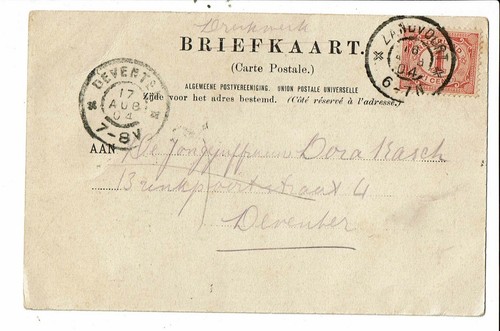 Drukwerk
BRIEFKAART.
(Carte Postale.)
ALGEMEENE POSTVEREENIGING. UNION POSTALE UNIVERSELLE
Zijde voor het adres bestemd. (Côté réservé à l'adresse.)
DEVENTER
17
AUG
04
7-8V
ZANDVOORT
16
04
6-7N
AAN De Jongejuffrouw Dora Kasch
Brinkpoortstraat 4
Deventer